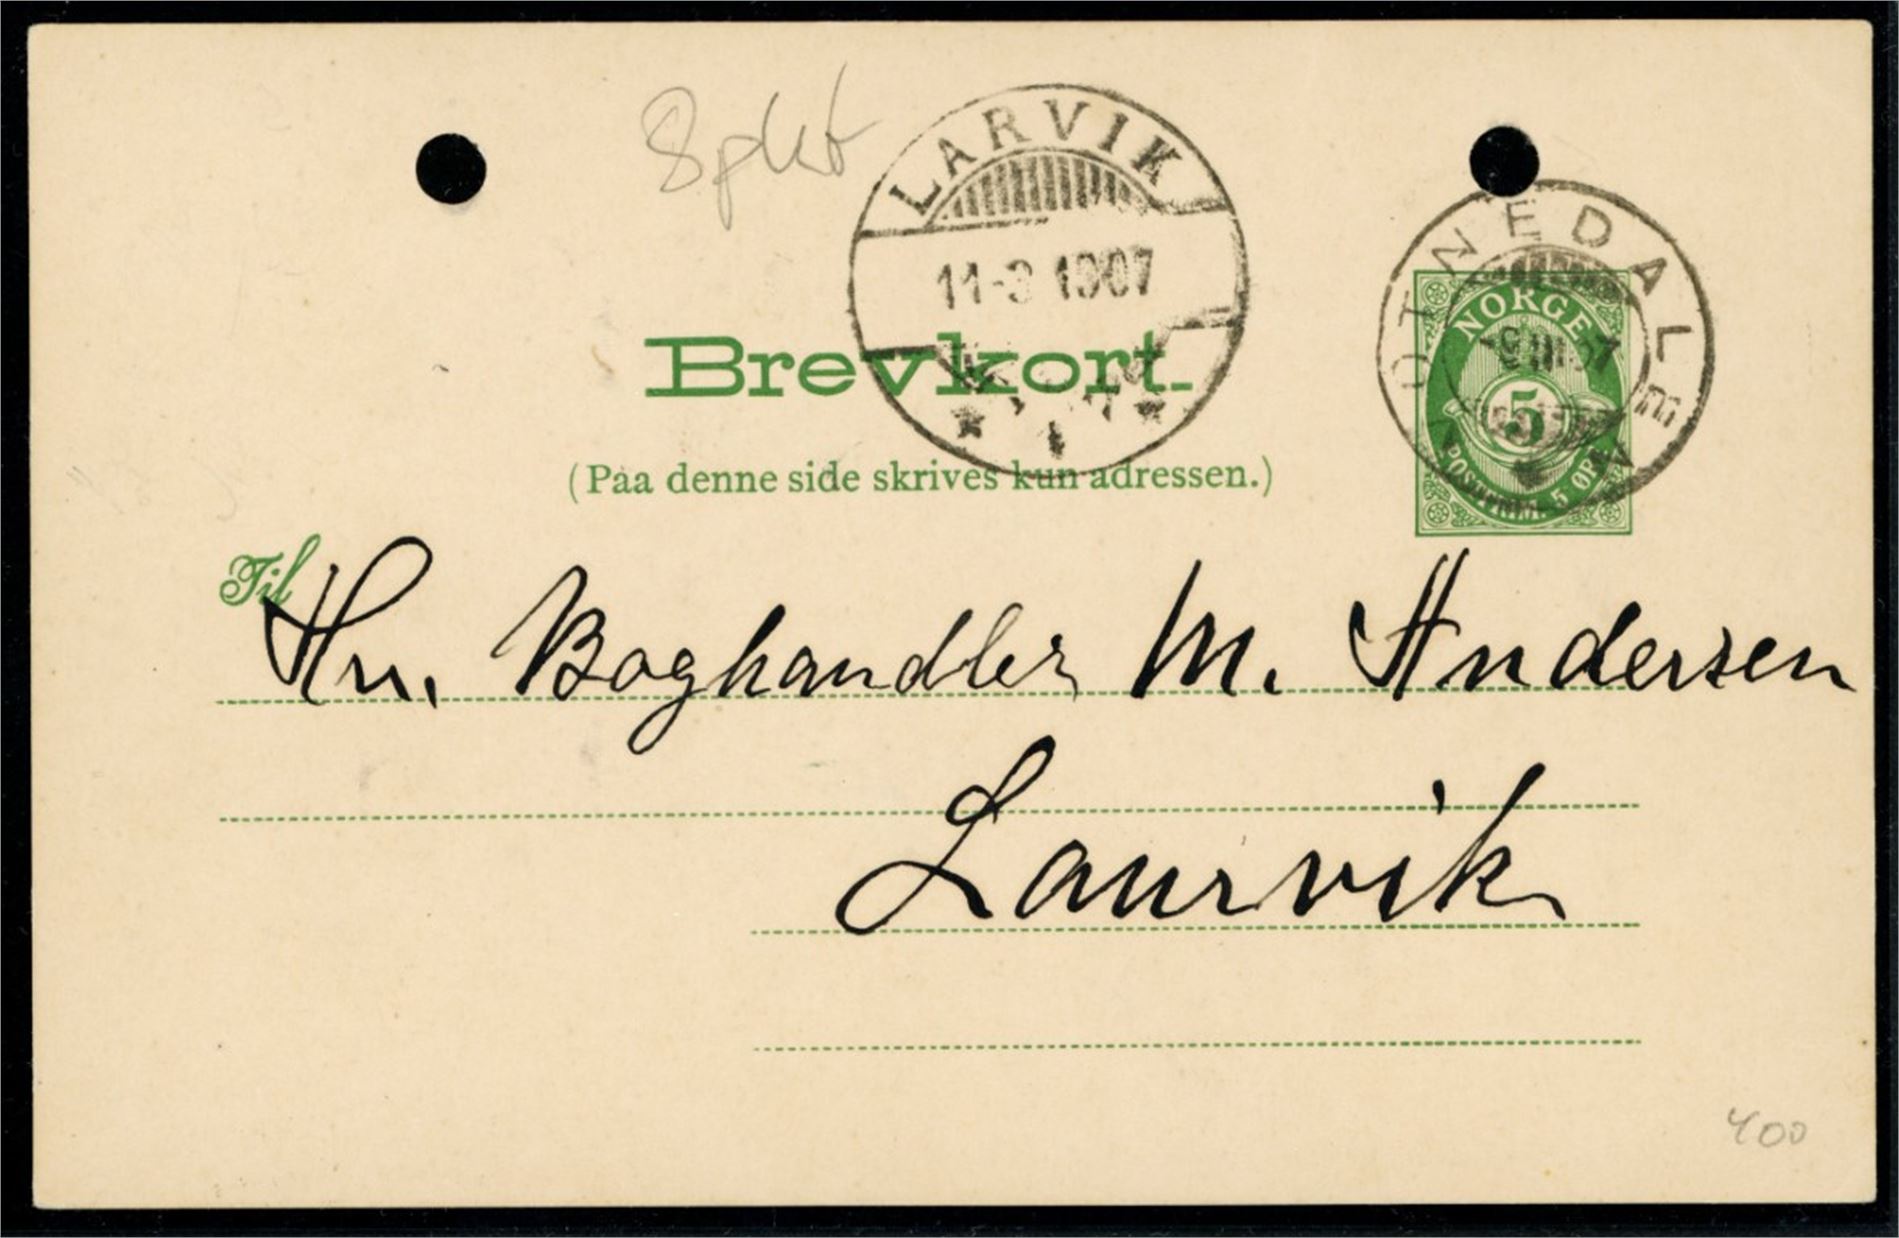 8 pkt
LARVIK
11-3 1907
OTNEDALEN
NORGE
5
POSTFRIM. 5 ØRE
Brevkort.
(Paa denne side skrives kun adressen.)
Til
Hr. Boghandler M. Andersen
Laurvik
400